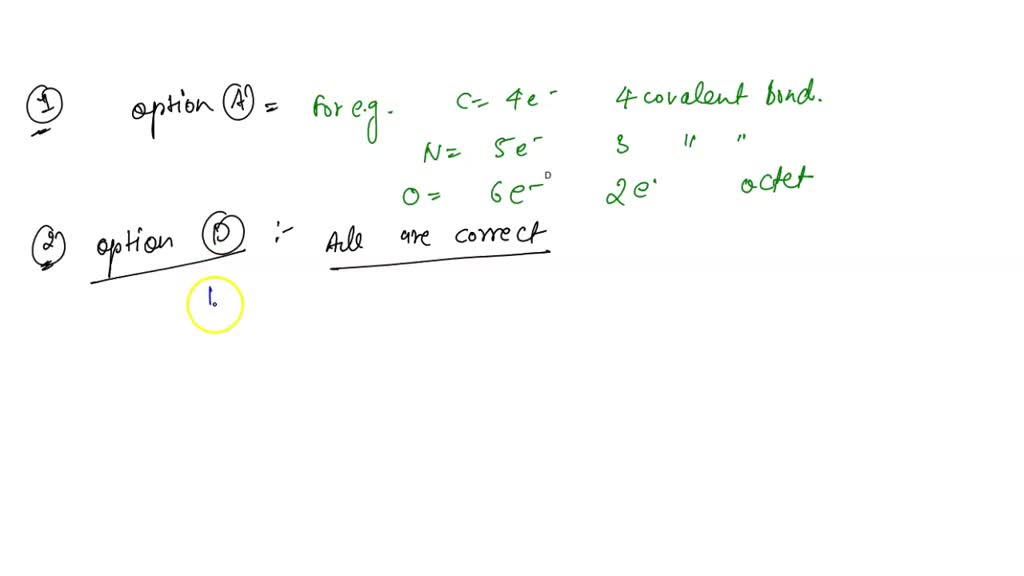 ① option Ⓐ = For e.g. C = 4e⁻ 4 covalent bond.
N = 5e⁻ 3 " "
O = 6e⁻ 2e⁻ octet
② option Ⓓ :- All are correct
1.